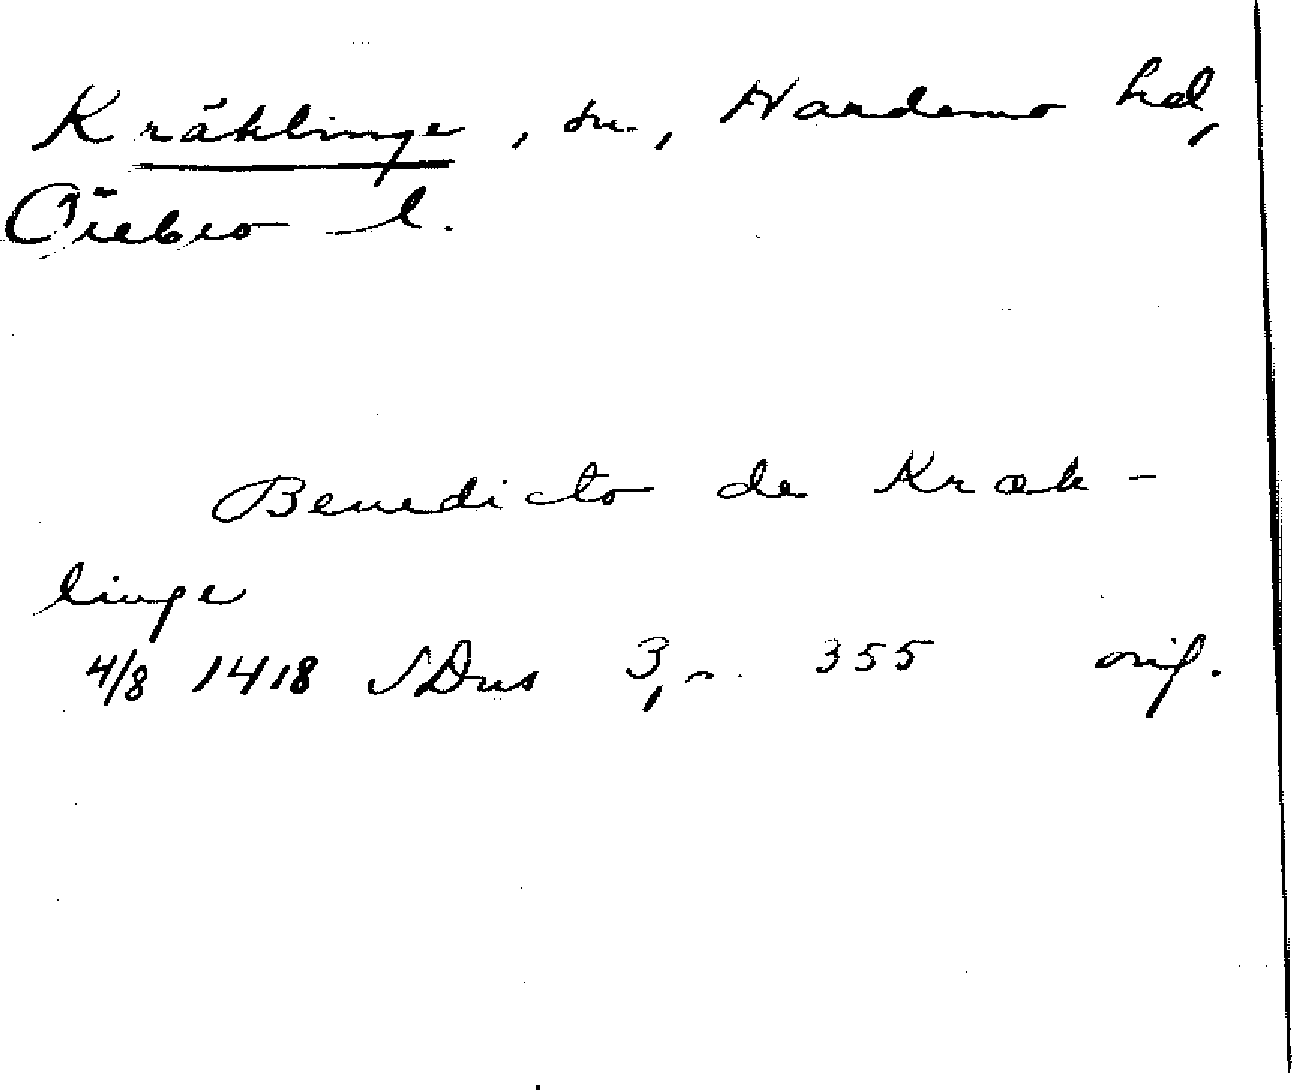 Kräklinge, sn, Hardemo hd,
Örebro l.
Benedicto de Kræk-
linge
4/8 1418 SDns 3, s. 355 orig.